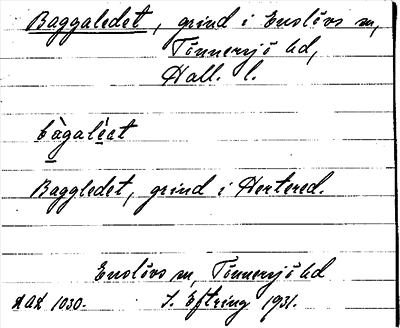 Baggaledet, grind i Enslövs sn,
Tönnersjö hd,
Hall. l.
bàgalèat
Baggledet, grind i Hertered.
Enslövs sn, Tönnersjö hd
DAL 1030. J. Eftring 1931.